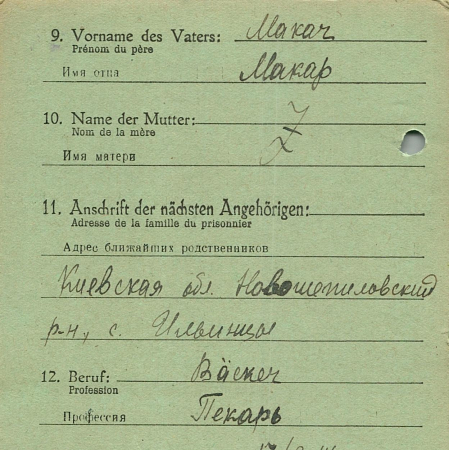 9. Vorname des Vaters: Макач
Prénom du père
Имя отца Макар
10. Name der Mutter:
Nom de la mère
Имя матери
11. Anschrift der nächsten Angehörigen:
Adresse de la famille du prisonnier
Адрес ближайших родственников
Киевская обл. Новошепиловский
р-н, с. Ильинцы
12. Beruf: Bäcker
Profession
Профессия Пекарь